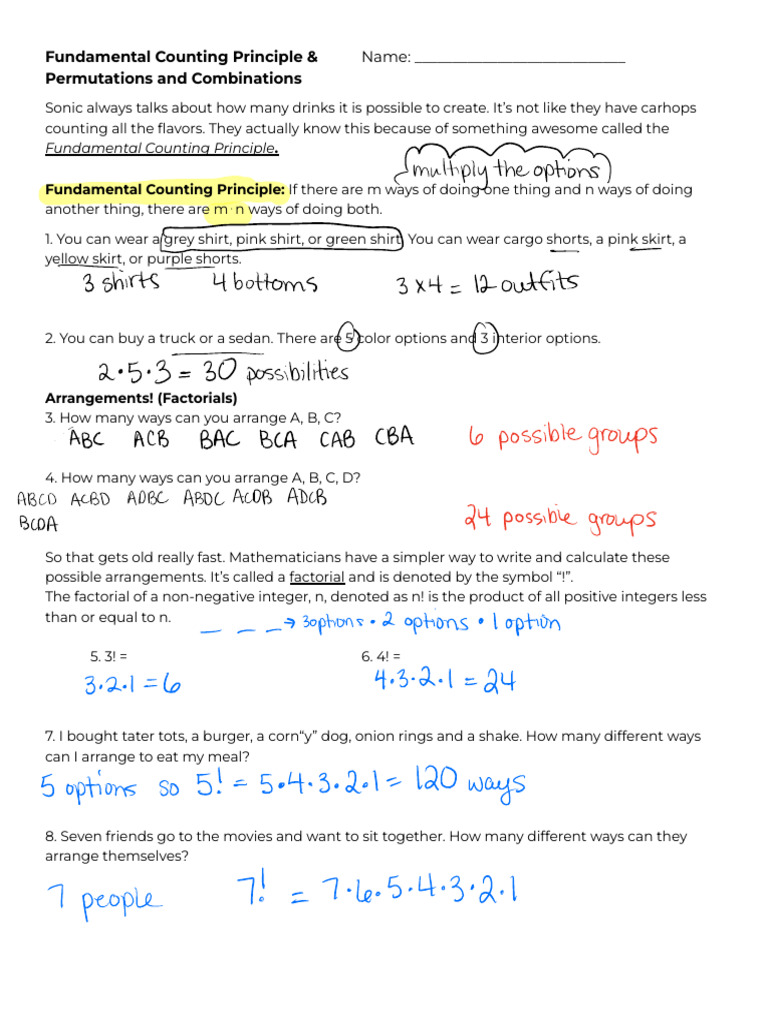 Fundamental Counting Principle & Name: ___________________________
Permutations and Combinations
Sonic always talks about how many drinks it is possible to create. It's not like they have carhops
counting all the flavors. They actually know this because of something awesome called the
Fundamental Counting Principle.
multiply the options
Fundamental Counting Principle: If there are m ways of doing one thing and n ways of doing
another thing, there are m · n ways of doing both.
1. You can wear a grey shirt, pink shirt, or green shirt. You can wear cargo shorts, a pink skirt, a
yellow skirt, or purple shorts.
3 shirts 4 bottoms 3 x 4 = 12 outfits
2. You can buy a truck or a sedan. There are 5 color options and 3 interior options.
2 • 5 • 3 = 30 possibilities
Arrangements! (Factorials)
3. How many ways can you arrange A, B, C?
ABC ACB BAC BCA CAB CBA 6 possible groups
4. How many ways can you arrange A, B, C, D?
ABCD ACBD ADBC ABDC ACDB ADCB
BCDA 24 possible groups
So that gets old really fast. Mathematicians have a simpler way to write and calculate these
possible arrangements. It's called a factorial and is denoted by the symbol "!".
The factorial of a non-negative integer, n, denoted as n! is the product of all positive integers less
than or equal to n. _ _ _ → 3 options • 2 options • 1 option
5. 3! = 6. 4! =
3 • 2 • 1 = 6 4 • 3 • 2 • 1 = 24
7. I bought tater tots, a burger, a corn"y" dog, onion rings and a shake. How many different ways
can I arrange to eat my meal?
5 options so 5! = 5 • 4 • 3 • 2 • 1 = 120 ways
8. Seven friends go to the movies and want to sit together. How many different ways can they
arrange themselves?
7 people 7! = 7 • 6 • 5 • 4 • 3 • 2 • 1